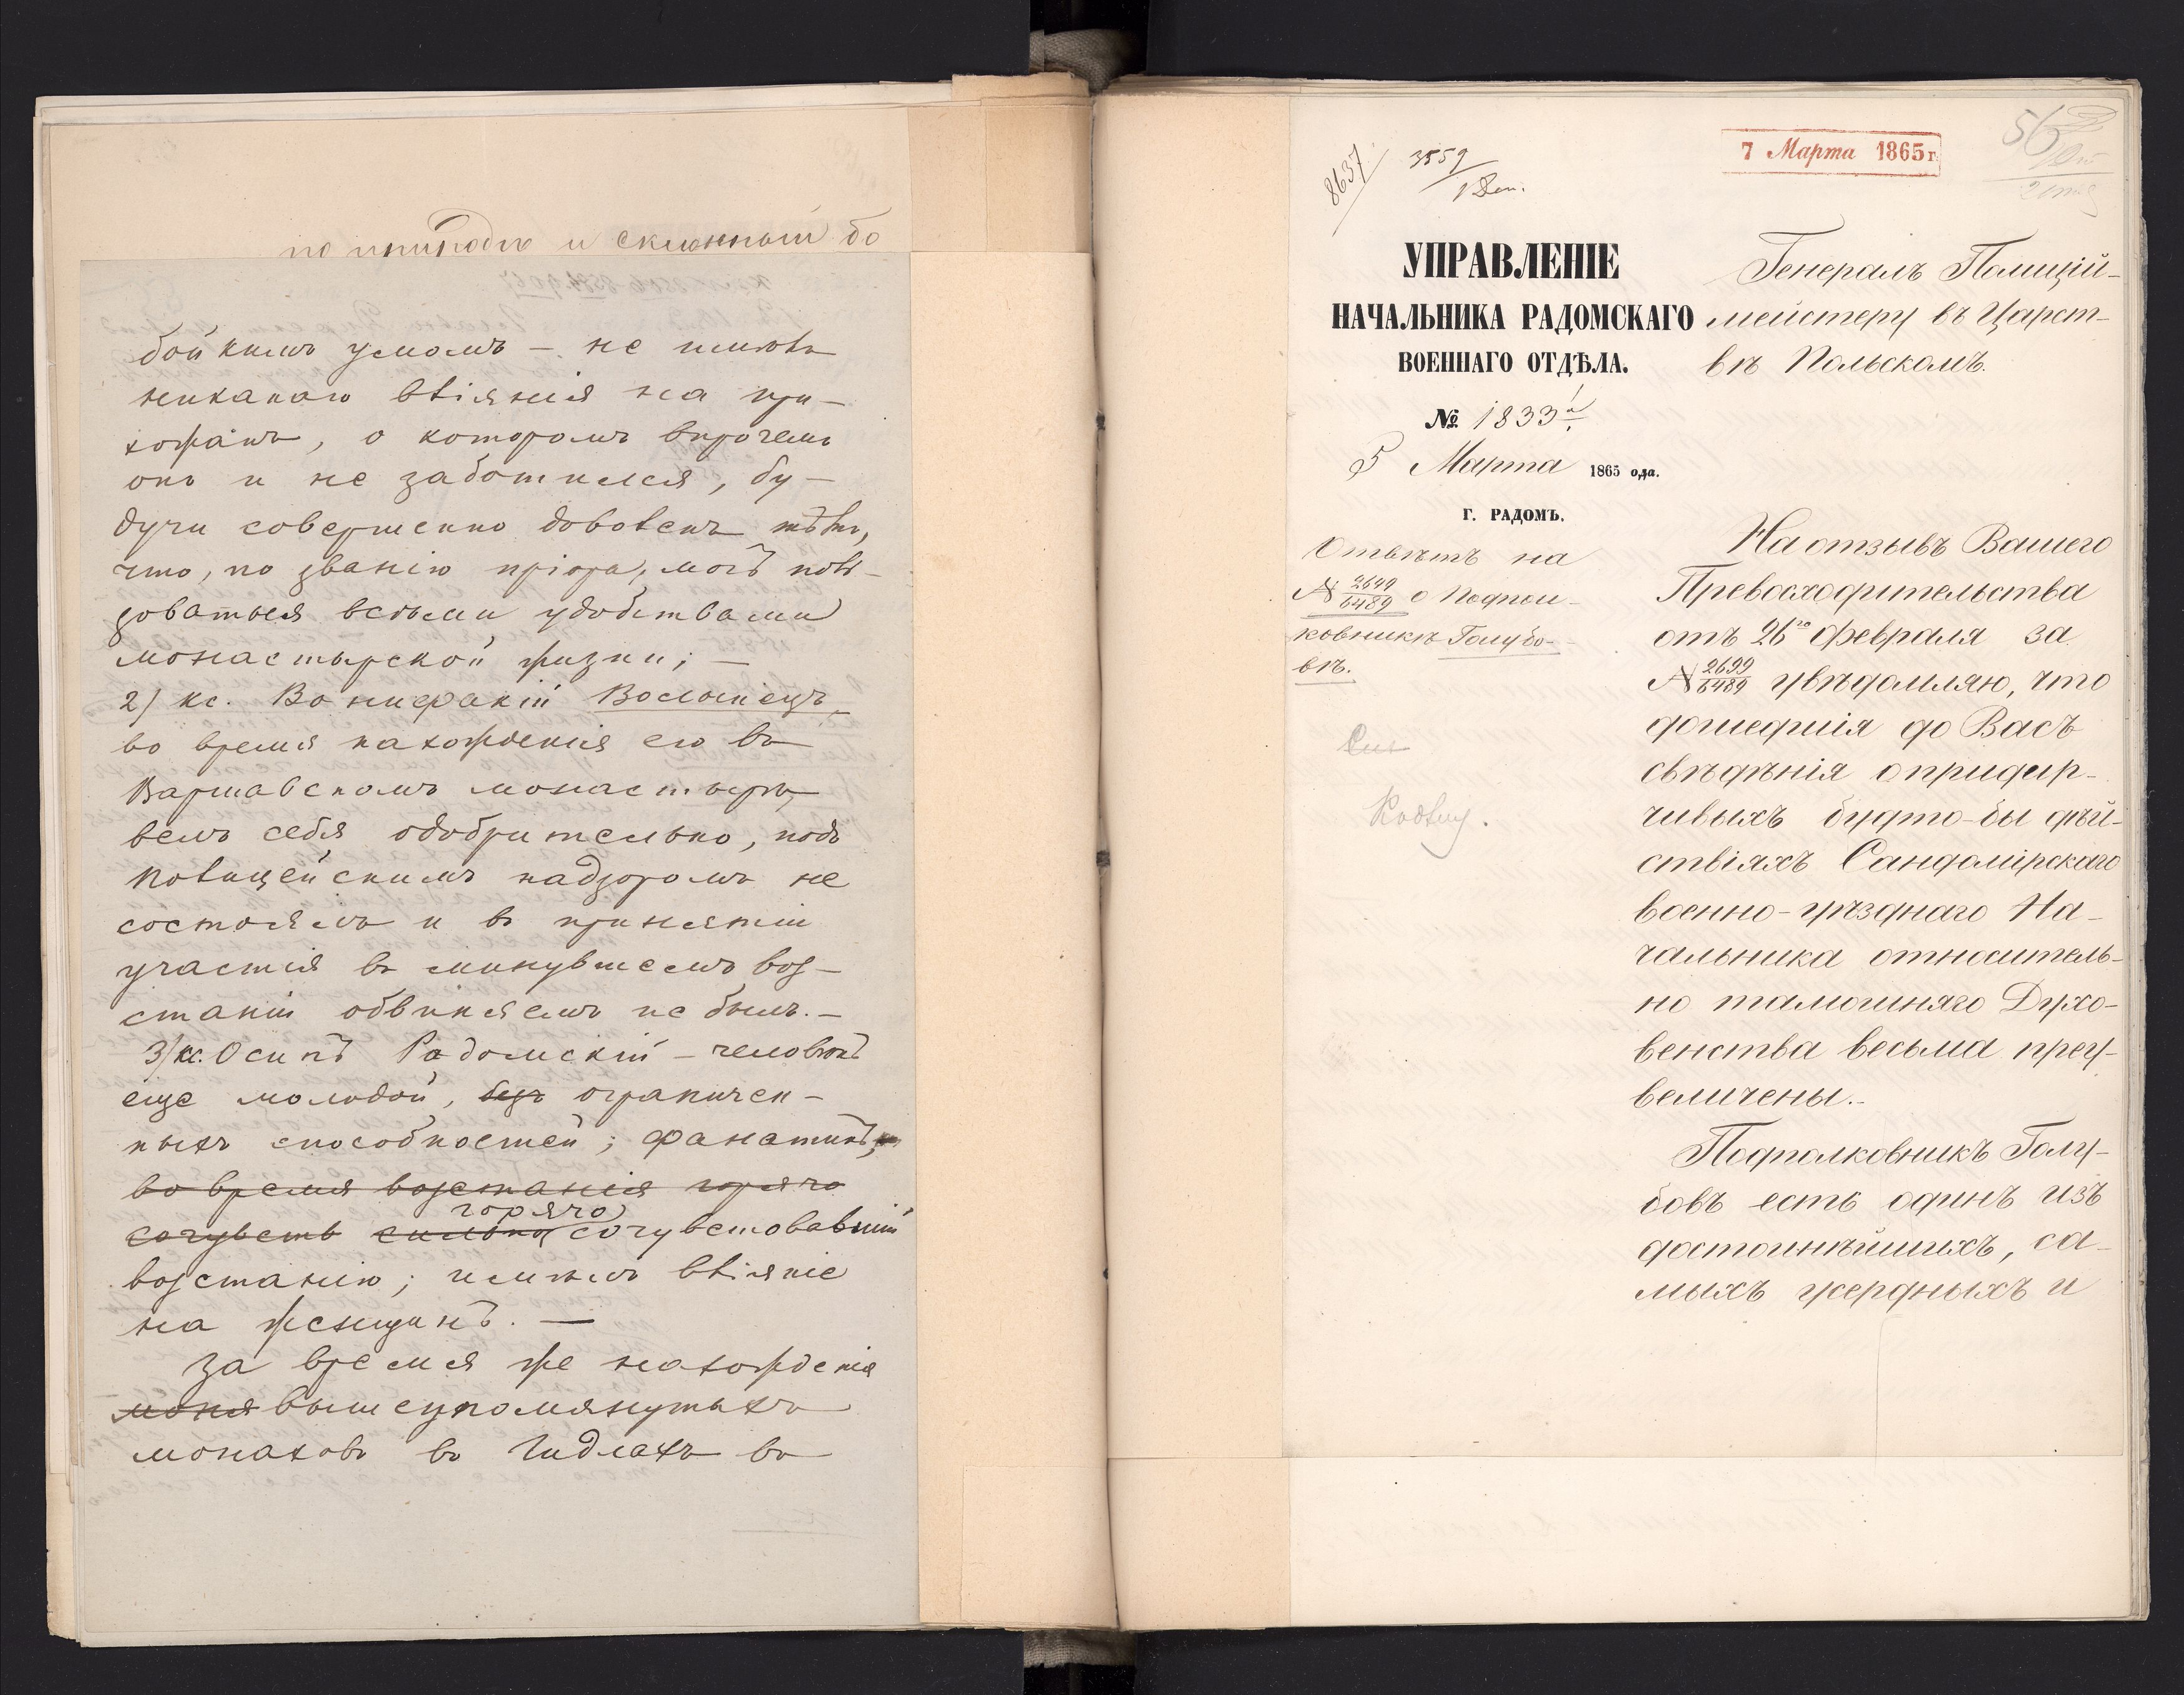 по природѣ и склонный бо
бойкимъ умомъ – не имѣлъ
никакаго вліянія на при–
хожанъ, о которомъ впрочемъ
онъ и не заботился, бу–
дучи совершенно доволенъ тѣмъ,
что, по званію пріора, могъ поль–
зоваться всѣми удобствами
монастырской жизни; –
2/ кс. Бонифакій Волынецъ,
во время нахожденія его въ
Варшавскомъ монастырѣ,
велъ себя одобрительно, подъ
полицейскимъ надзоромъ не
состоялъ и въ принятіи
участія въ минувшемъ воз–
станіи обвиняемъ не былъ. –
3/ кс. Осипъ Радомскій – человѣкъ
еще молодой, безъ ограничен–
ныхъ способностей; фанатикъ,
во время возстанія горячо
горячо
сочувств сильно сочувствовавшій
возстанію; имѣлъ вліяніе
на женщинъ. —
За время же нахожденія
вышеупомянутыхъ
монаховъ въ Гидлахъ въ
8637
3559
7 Марта 1865 г.
56
УПРАВЛЕНІЕ
НАЧАЛЬНИКА РАДОМСКАГО
ВОЕННАГО ОТДѢЛА.
№ 1833
5 Марта 1865 ода.
г. РАДОМЪ.
Отвѣтъ на
№ 2649/6489 о Подпол–
ковникѣ Голубо–
вѣ.
Генералъ Полицій–
мейстеру въ Царст–
вѣ Польскомъ.
На отзывъ Вашего
Превосходительства
отъ 26го Февраля за
№ 2699/6489 увѣдомляю, что
дошедшія до Васъ
свѣдѣнія о придир–
чивыхъ будто-бы дѣй–
ствіяхъ Сандомірскаго
военно-уѣзднаго На–
чальника относитель–
но тамошняго Духо–
венства весьма преу–
величены.–
Подполковникъ Голу–
бовъ есть одинъ изъ
достойнѣйшихъ, са–
мыхъ усердныхъ и